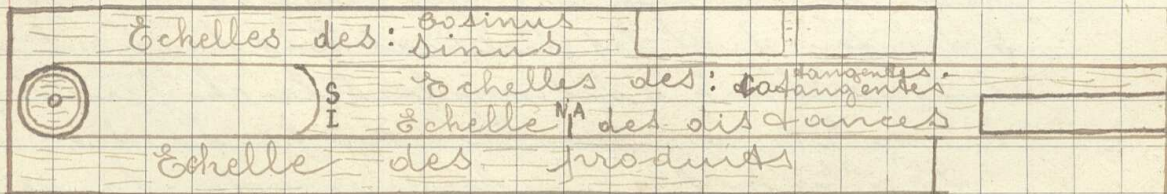 Echelles des: cosinus
sinus
Echelles des: tangentes.
cotangentes
S
I
Echelle N A des distances
Echelle des produits